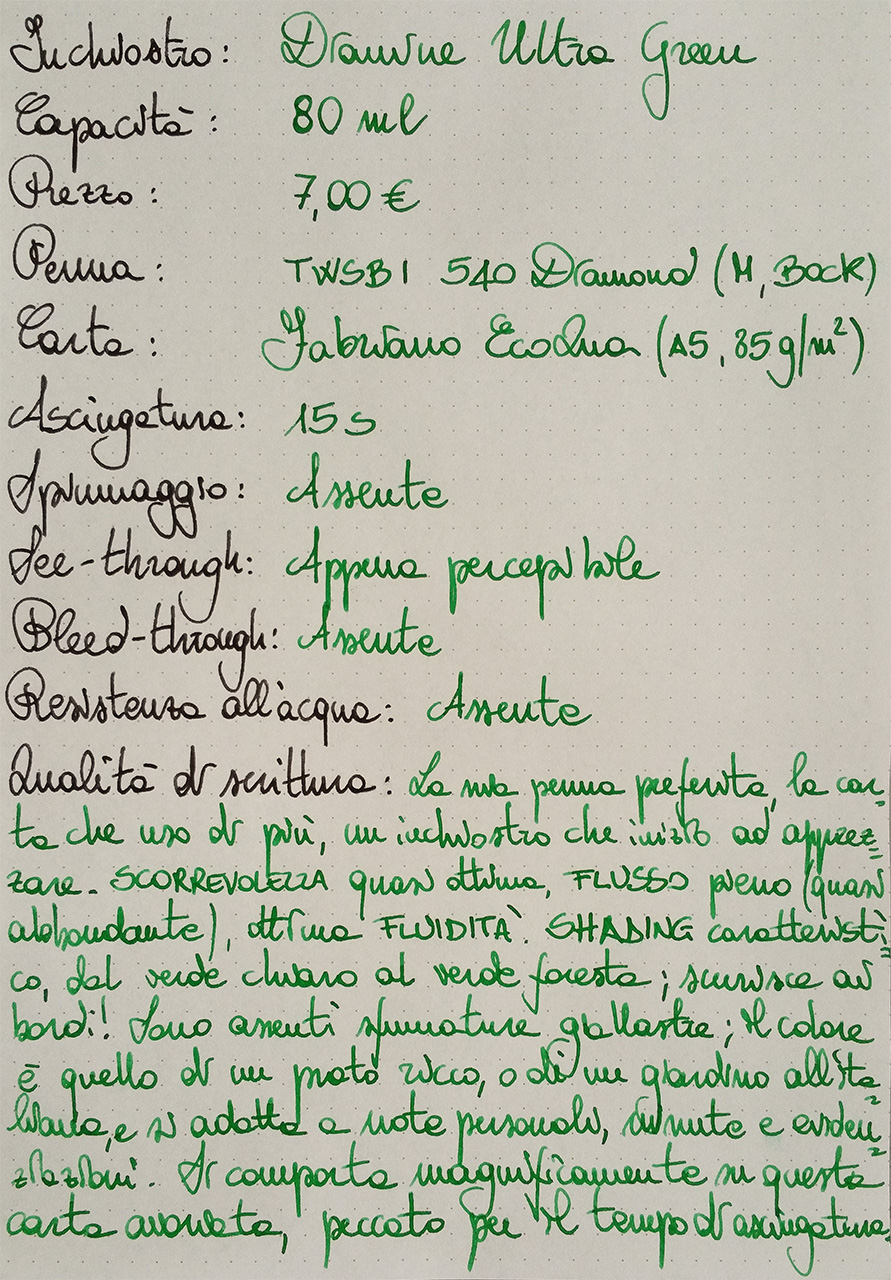 Inchiostro: Diamine Ultra Green
Capacità: 80 ml
Prezzo: 7,00 €
Penna: TWSBI 540 Diamond (M, Bock)
Carta: Fabriano EcoQua (A5, 85 g/m²)
Asciugatura: 15 s
Spiumaggio: Assente
See-through: Appena percepibile
Bleed-through: Assente
Resistenza all'acqua: Assente
Qualità di scrittura: La mia penna preferita, la car-
ta che uso di più, un inchiostro che inizio ad apprez=
zare. SCORREVOLEZZA quasi ottima, FLUSSO pieno (quasi
abbondante), ottima FLUIDITÀ. SHADING caratteristi=
co, dal verde chiaro al verde foresta; scurisce ai
bordi! Sono assenti sfumature giallastre; il colore
è quello di un prato ricco, o di un giardino all'ita=
liana, e si adatta a note personali, minute e eviden=
ziazioni. Si comporta magnificamente su questa
carta avoriata, peccato per il tempo di asciugatura.